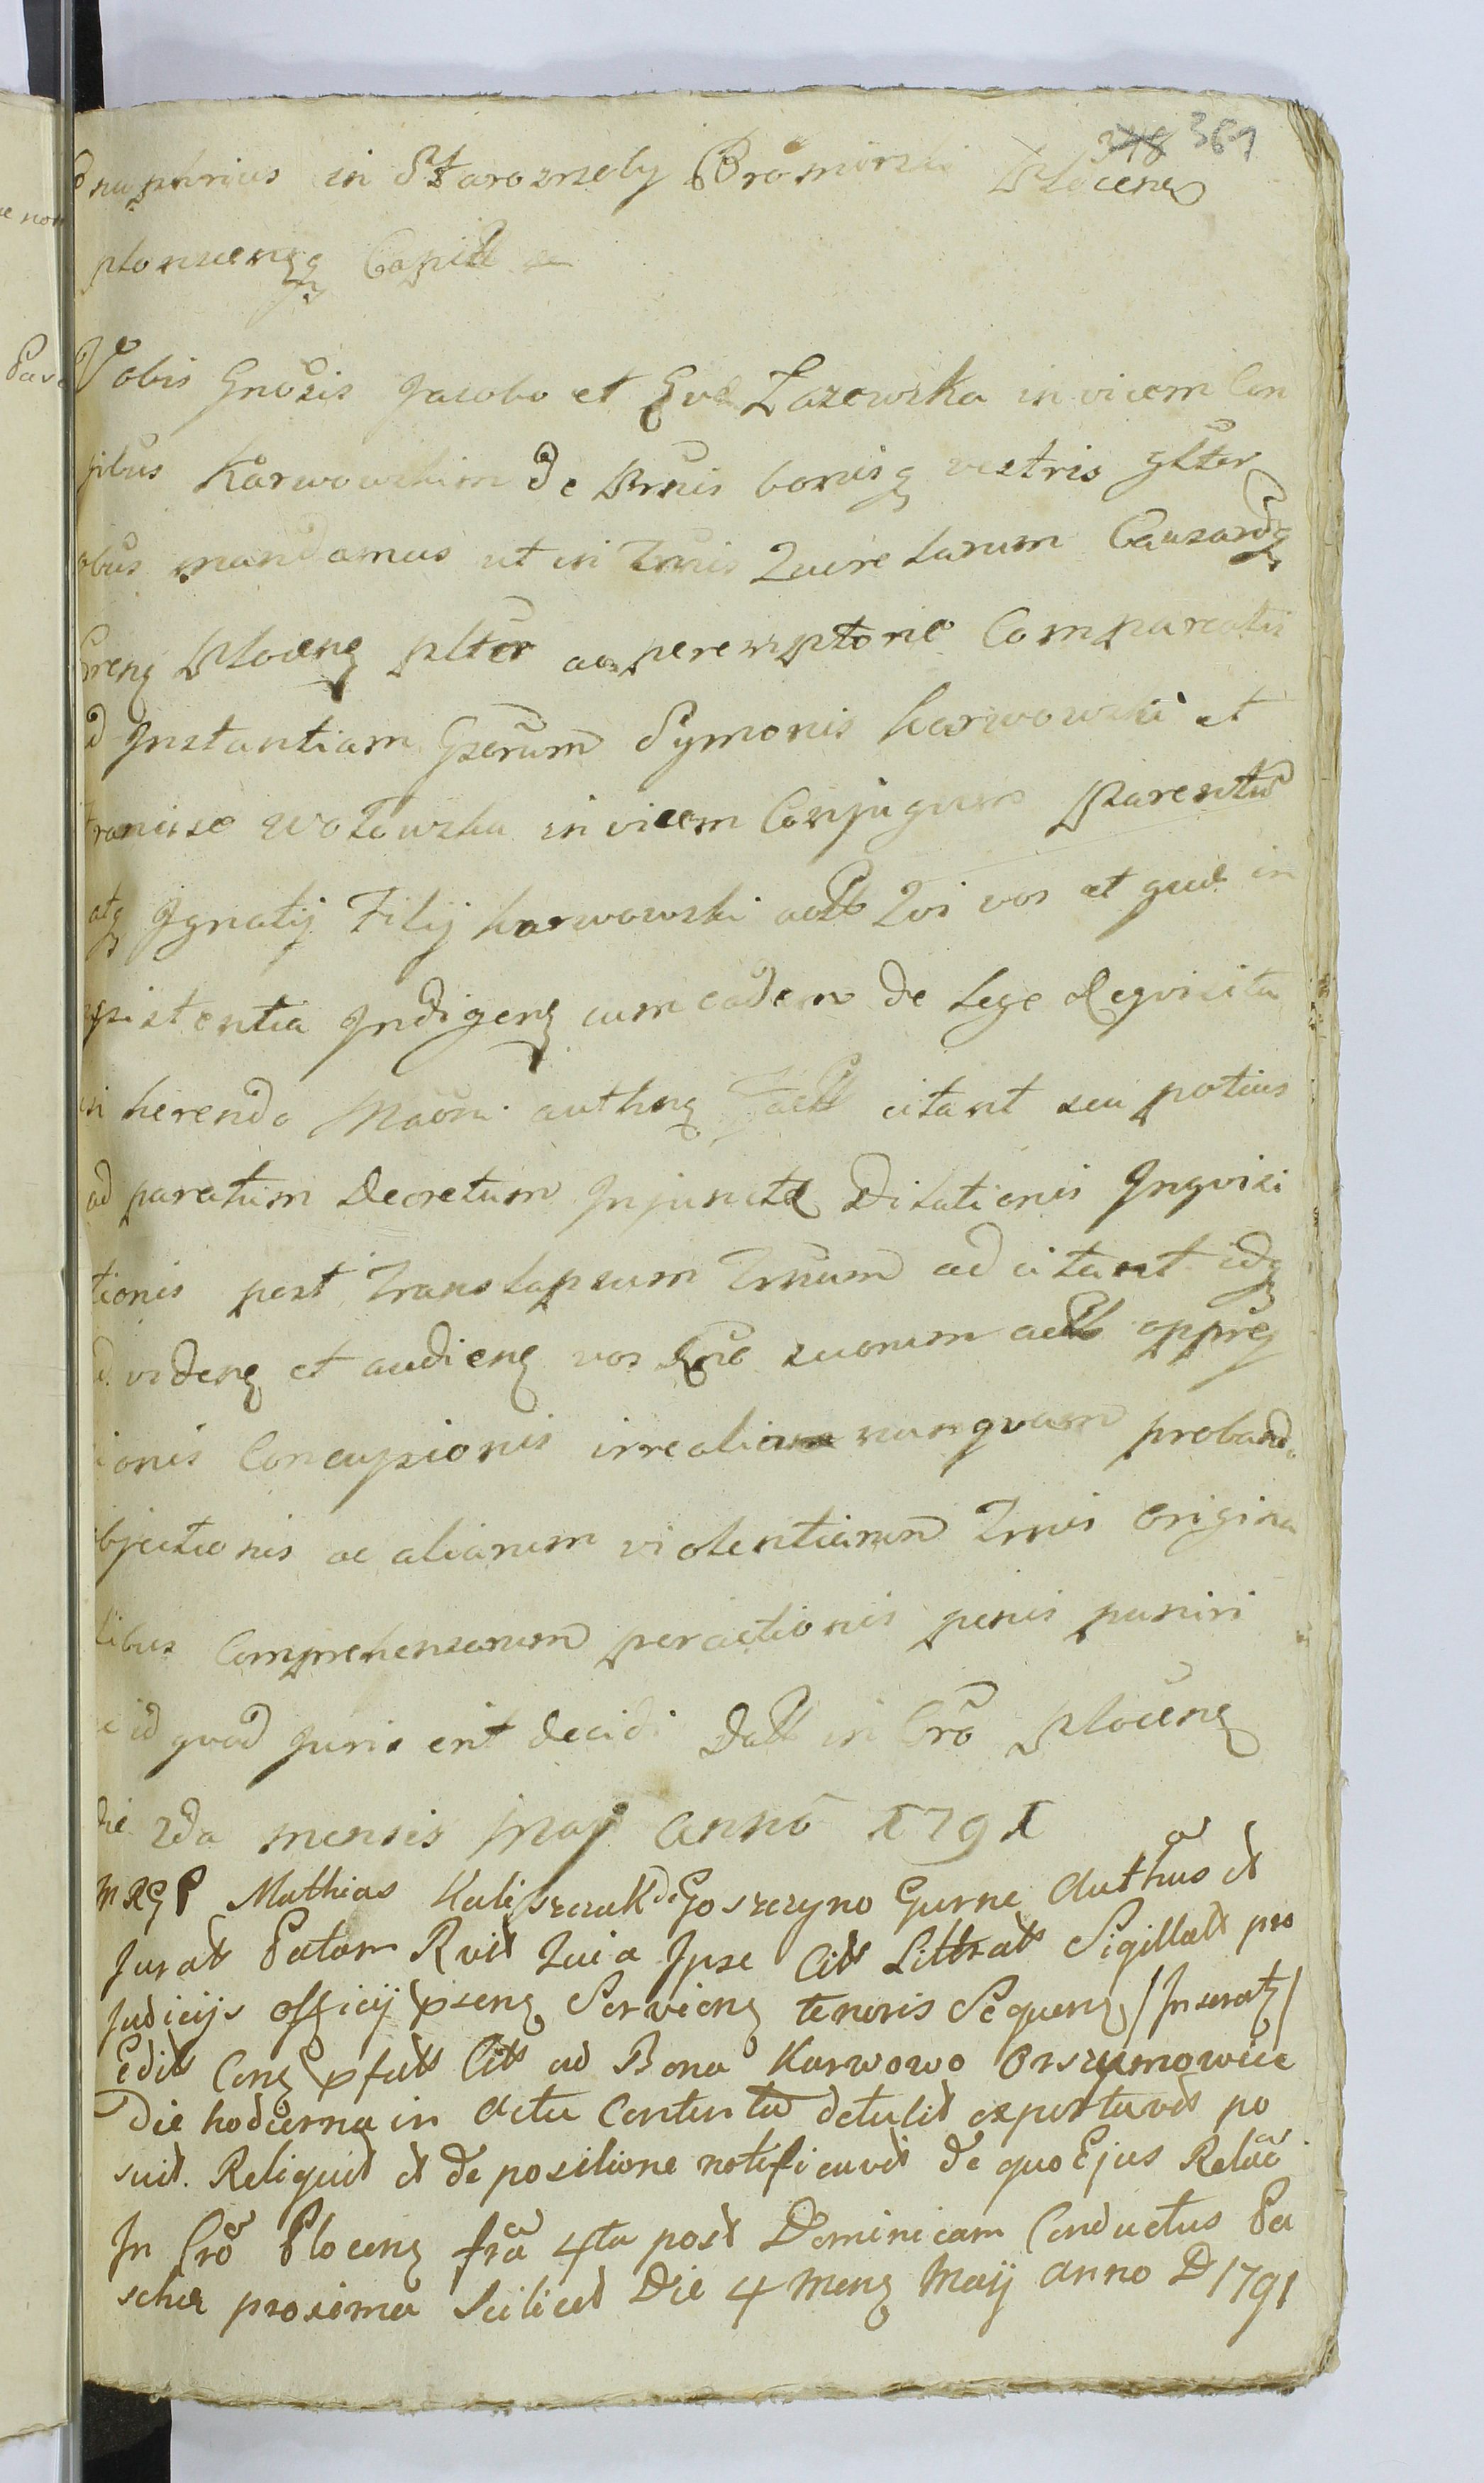 348 369
Onuphrius in Starozreby Bromirski Plocen
plonscenq Capit
Vobis Gnosis Jacobo et Eva Zazewska invicem Con
jibus Karwowskim de Prnis bonisq vestris gltor
obus mandamus ut in Trnis Querelarum Causarq
Crenq Plocenq pltor ac peremptorie Compareatis
d Instantiam Gserum Symonis Karwowski et
rancisc Wolowska invicem Conjugum Parentu
atq Ignatij Filij Karwowski actt Qui vos et que in
sistentia Indigenq cum eadem de Lege Requisita
in herendo Maori authenq Factt citant seu potius
ad paratum Decretum Injuncta Dilationis Inquisi
tionis post Translapsum Trnum adcitant idq
d videnq et audienq vos Rne suorum actt oppreq
ionis Concussionis irrealium nunquam proband
bjectionis ac aliarum violentiarum Trnis Origina
libus Comprehensarum peractionis penis puniri
c id quod Juris erit decidi Datt in Cro Plocenq
die 2da mensis Maij Anno 1791
MRGP Mathias Kaliszczak de Goszczyno Gurne Authus et
Jurat Palam Rvit Quia Ipse Citt Littratt Sigillatt pro
Judicijs officij psenq Servienq tenoris Sequenq /Inseratq/
Editt Conq pfatt Citt ad Bona Karwowo Orszymowice
Die hodierna in Actu Contenta detulit exportavit po
suit. Reliquit et de positione notificavit de quo Ejus Relac
In Cro Plocenq fra 4ta post Dominicam Conductus Pa
scha proxima Scilicet Die 4 Menq Maij Anno D 1791